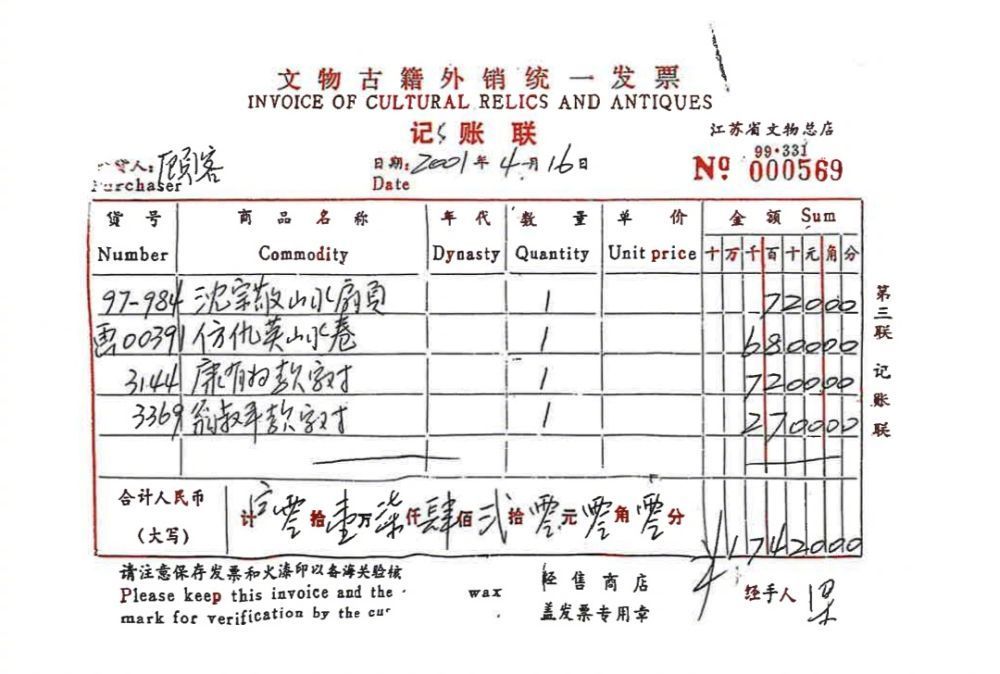 文物古籍外销统一发票
INVOICE OF CULTURAL RELICS AND ANTIQUES
记账联
江苏省文物总店
货人：顾客
Purchaser
日期：2001年4月16日
Date
99·331
Nº 000569
货号 商品名称 年代 数量 单价 金额 Sum
Number Commodity Dynasty Quantity Unit price 十万千百十元角分
97-984 沈宗敬山水扇页 1 72000
画00391 仿仇英山水卷 1 680000
3144 康有为款字对 1 720000
3369 翁叔平款字对 1 270000
合计人民币
（大写）
计零拾壹万柒仟肆佰贰拾零元零角零分
¥1742000
第三联 记账联
请注意保存发票和火漆印以备海关验核
Please keep this invoice and the wax
mark for verification by the cu
经售商店
盖发票专用章
经手人